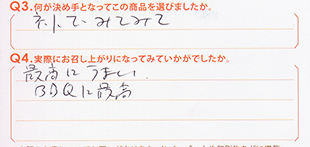 Q3.何が決め手となってこの商品を選びましたか。
ネットでみてみて
Q4.実際にお召し上がりになってみていかがでしたか。
最高にうまい
BBQに最高